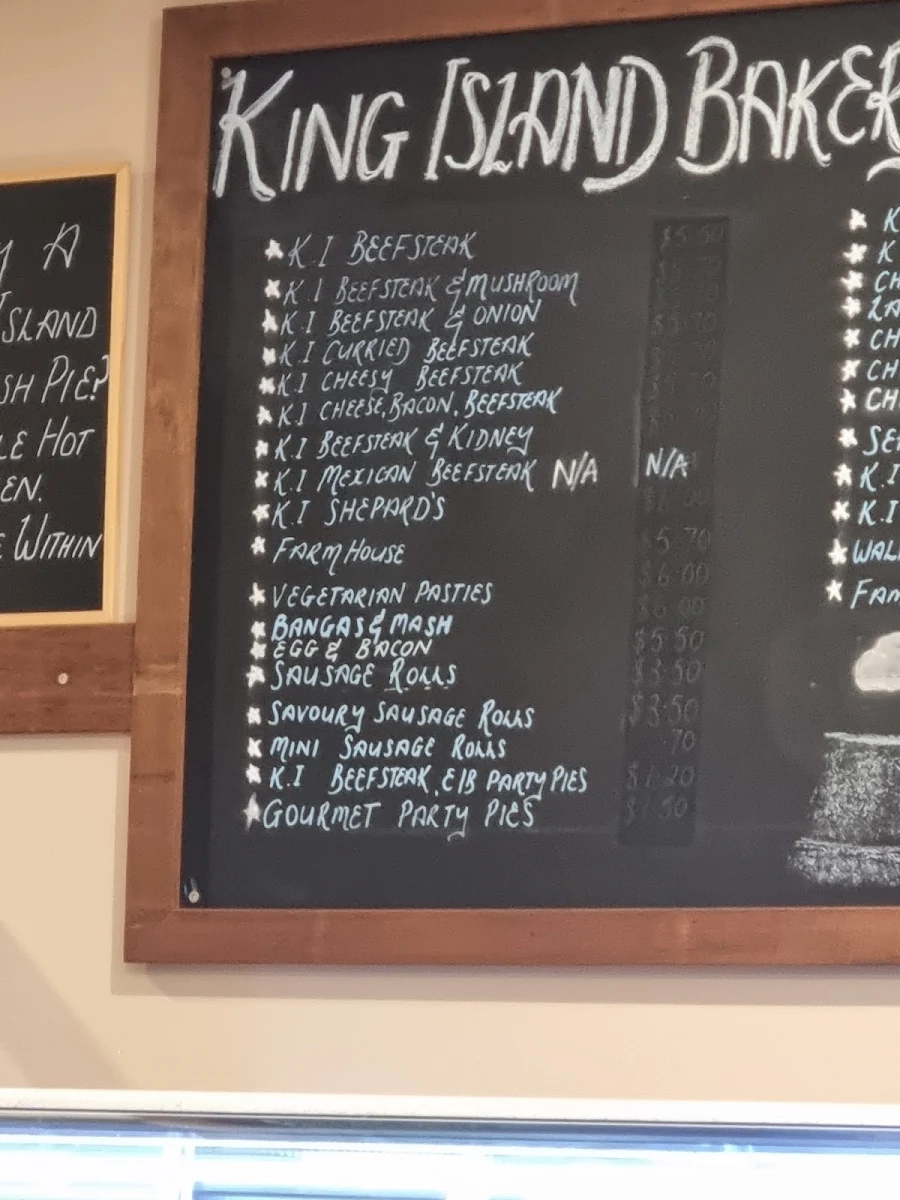 Y A
ISLAND
SH PIE?
LE HOT
EN.
E WITHIN
KING ISLAND BAKER
K.I BEEFSTEAK $5.50
K.I BEEFSTEAK & MUSHROOM
K.I BEEFSTEAK & ONION
K.I CURRIED BEEFSTEAK
K.I CHEESY BEEFSTEAK
K.I CHEESE, BACON, BEEFSTEAK
K.I BEEFSTEAK & KIDNEY
K.I MEXICAN BEEFSTEAK N/A N/A
K.I SHEPARD'S
FARMHOUSE $5.70
$6.00
VEGETARIAN PASTIES $6.00
BANGAS & MASH $5.50
EGG & BACON
SAUSAGE ROLLS $3.50
SAVOURY SAUSAGE ROLLS $3.50
MINI SAUSAGE ROLLS 70
K.I BEEFSTEAK, E/B PARTY PIES $1.20
GOURMET PARTY PIES $1.50
K
K
CH
LA
CH
CH
CH
SE
K.I
K.I
WAL
FAM